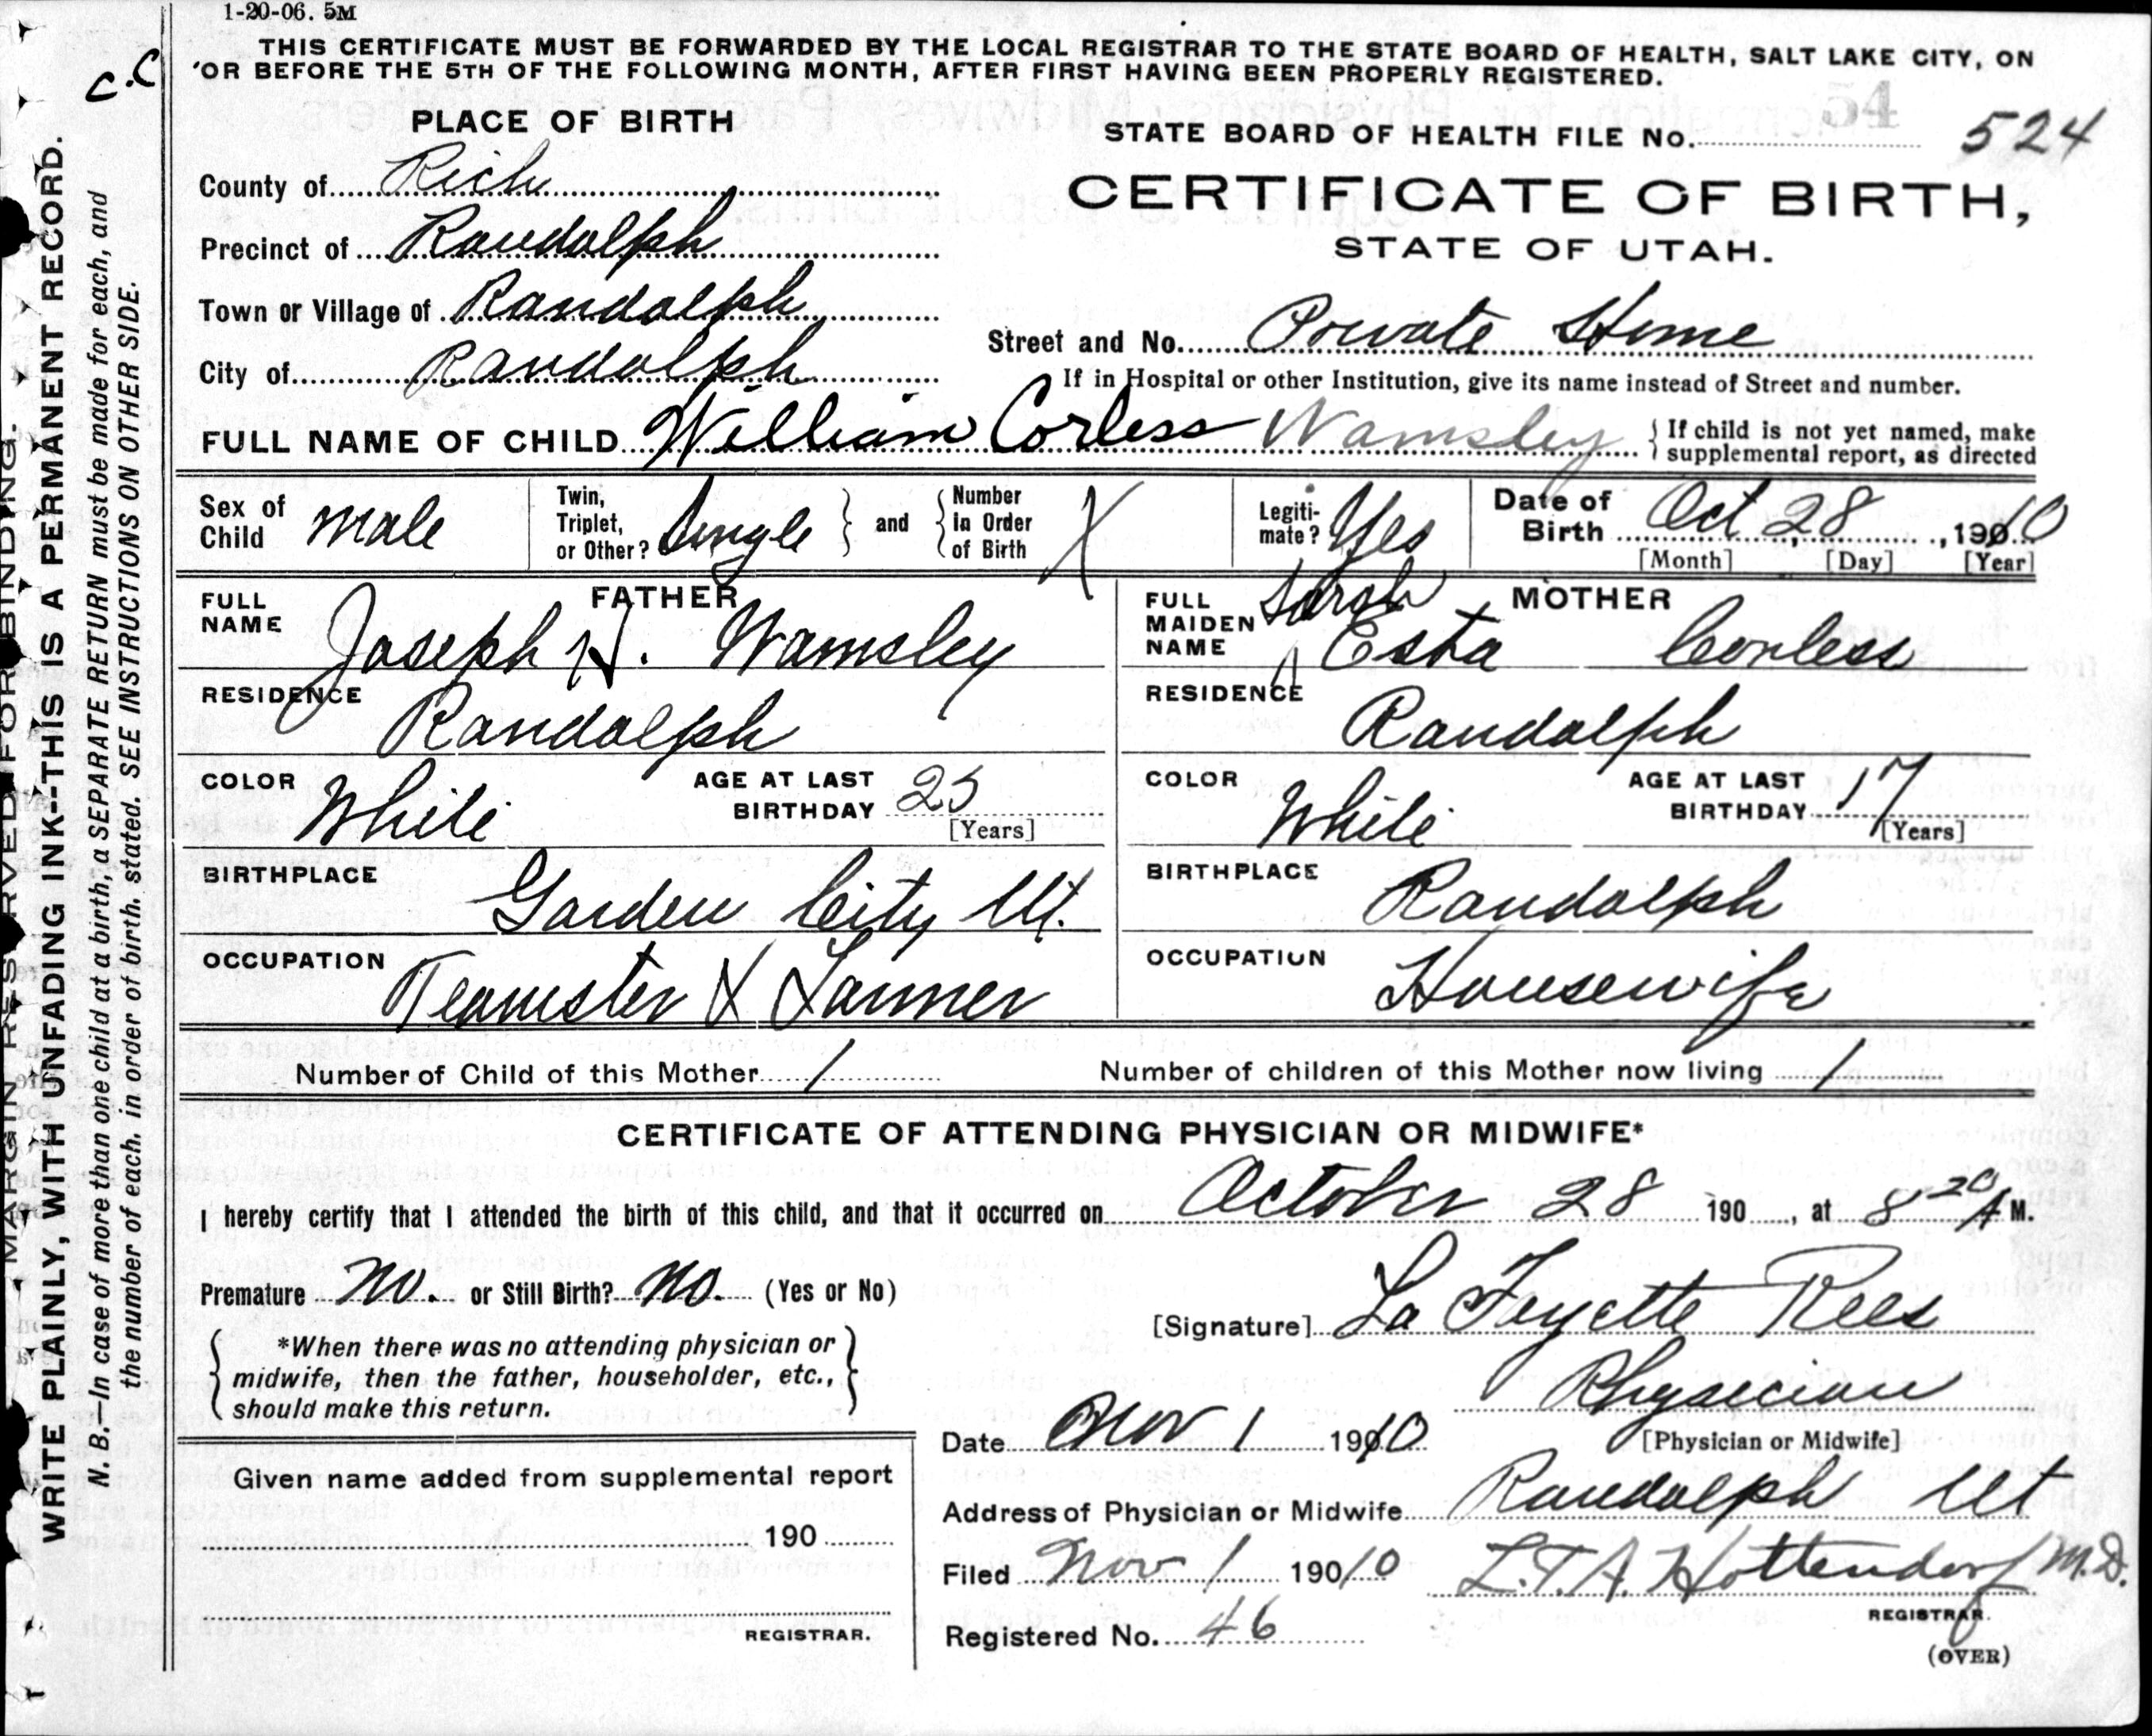 1-20-06. 5M
THIS CERTIFICATE MUST BE FORWARDED BY THE LOCAL REGISTRAR TO THE STATE BOARD OF HEALTH, SALT LAKE CITY, ON
OR BEFORE THE 5TH OF THE FOLLOWING MONTH, AFTER FIRST HAVING BEEN PROPERLY REGISTERED.
c.c
MARGIN RESERVED FOR BINDING.
WRITE PLAINLY, WITH UNFADING INK--THIS IS A PERMANENT RECORD.
N. B.—In case of more than one child at a birth, a SEPARATE RETURN must be made for each, and
the number of each, in order of birth, stated. SEE INSTRUCTIONS ON OTHER SIDE.
PLACE OF BIRTH
County of Rich
Precinct of Randolph
Town or Village of Randolph
City of Randolph
54
STATE BOARD OF HEALTH FILE No. 524
CERTIFICATE OF BIRTH,
STATE OF UTAH.
Street and No. Private Home
If in Hospital or other Institution, give its name instead of Street and number.
FULL NAME OF CHILD William Corless Wamsley { If child is not yet named, make
supplemental report, as directed
Sex of Child male
Twin, Triplet, or Other? Single } and { Number in Order of Birth X
Legitimate? Yes
Date of Birth Oct, 28, 1910
[Month] [Day] [Year]
FATHER
FULL NAME Joseph H. Wamsley
RESIDENCE Randolph
COLOR White AGE AT LAST BIRTHDAY 25 [Years]
BIRTHPLACE Garden City Ut.
OCCUPATION Teamster & Farmer
MOTHER
FULL MAIDEN NAME Sarah Esta Corless
RESIDENCE Randolph
COLOR White AGE AT LAST BIRTHDAY 17 [Years]
BIRTHPLACE Randolph
OCCUPATION Housewife
Number of Child of this Mother 1 Number of children of this Mother now living 1
CERTIFICATE OF ATTENDING PHYSICIAN OR MIDWIFE*
I hereby certify that I attended the birth of this child, and that it occurred on October 28 190 , at 8 20 A M.
Premature No. or Still Birth? No. (Yes or No)
*When there was no attending physician or
midwife, then the father, householder, etc.,
should make this return.
[Signature] La Fayette Rees
Physician
[Physician or Midwife]
Date Nov 1 1910
Address of Physician or Midwife Randolph Ut
Filed Nov 1 190 10 L.T.A. Hottendorf M.D.
REGISTRAR.
Registered No. 46
(OVER)
Given name added from supplemental report
190
REGISTRAR.